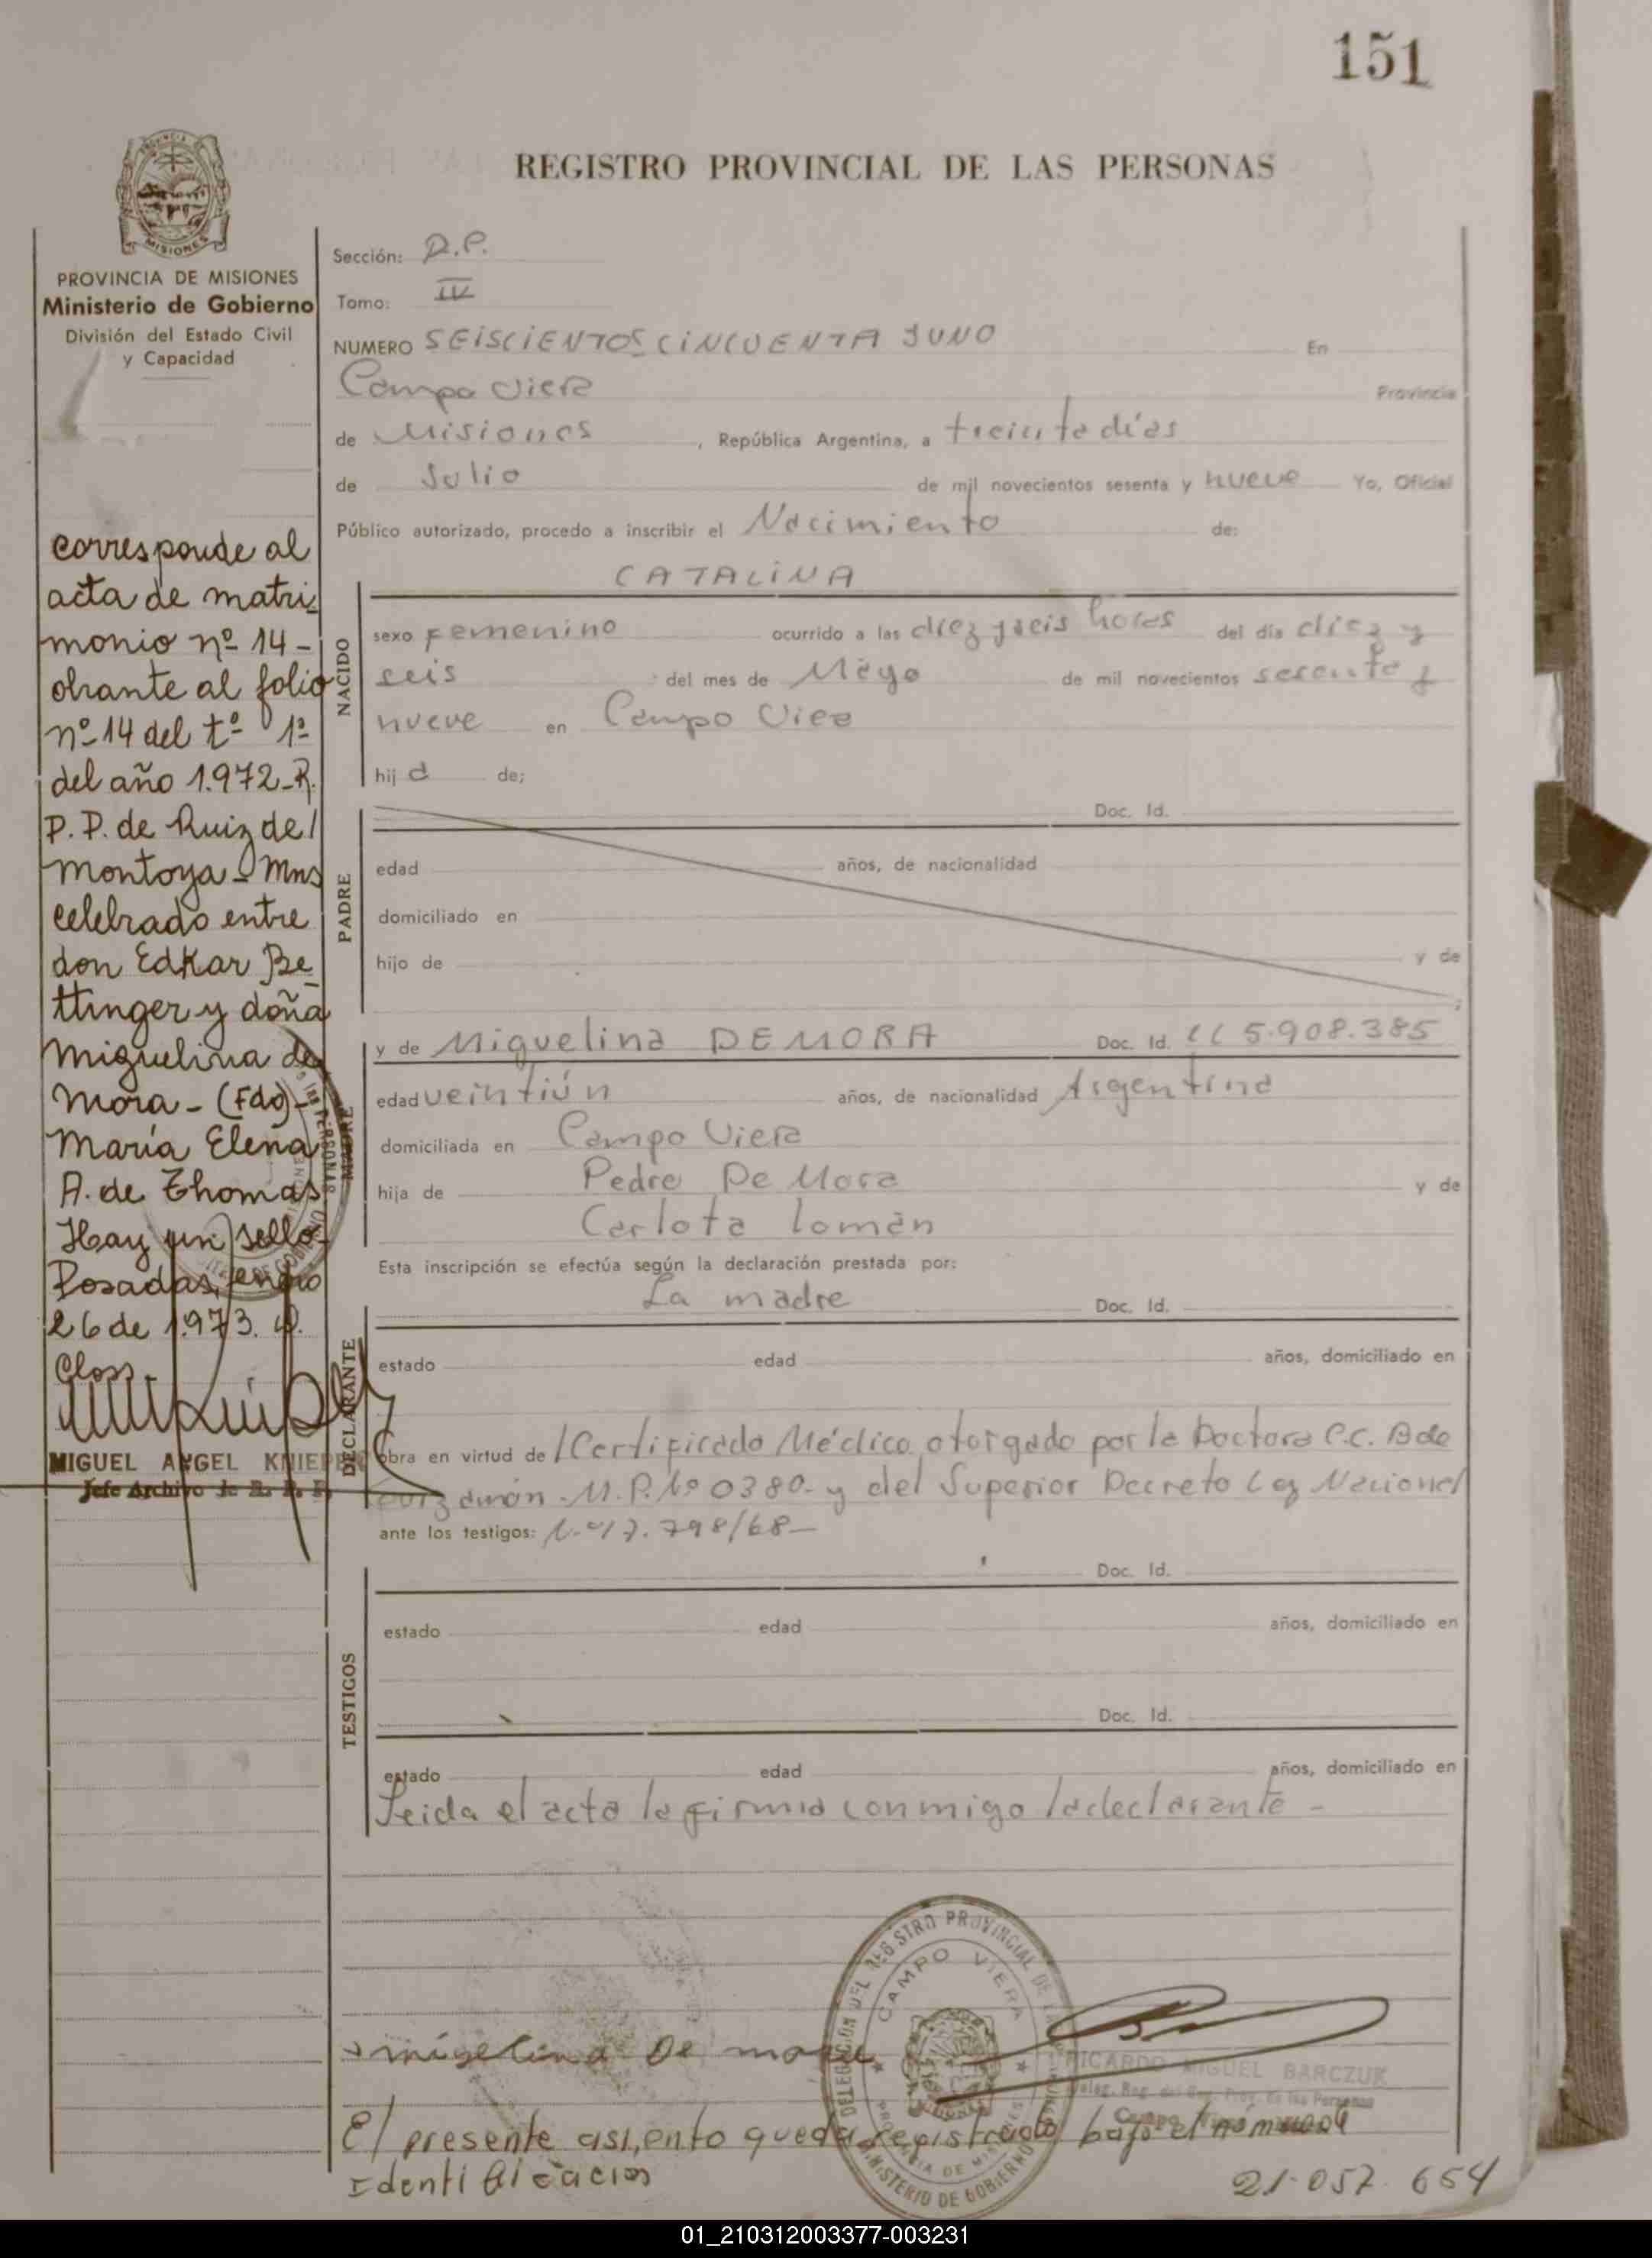 151
REGISTRO PROVINCIAL DE LAS PERSONAS
MISIONES
PROVINCIA DE MISIONES
Ministerio de Gobierno
División del Estado Civil
y Capacidad
Sección: D.P.
Tomo: IV
NUMERO SEISCIENTOS CINCUENTA Y UNO En
Campo Viera Provincia
de Misiones, República Argentina, a treinta días
de Julio de mil novecientos sesenta y nueve Yo, Oficial
Público autorizado, procedo a inscribir el Nacimiento de:
CATALINA
NACIDO
sexo Femenino ocurrido a las diez y seis horas del día diez y
seis del mes de Mayo de mil novecientos sesenta y
nueve en Campo Viera
hij a de;
PADRE
Doc. Id.
edad años, de nacionalidad
domiciliado en
hijo de y de
MADRE
y de Miguelina DE MORA Doc. Id. LC 5.908.385
edad veintiún años, de nacionalidad Argentina
domiciliada en Campo Viera
hija de Pedro De Mora y de
Carlota Loman
Esta inscripción se efectúa según la declaración prestada por:
La madre Doc. Id.
DECLARANTE
estado edad años, domiciliado en
Obra en virtud de l Certificado Médico otorgado por la Doctora C.C. B de
M.P. Nº 0380- y del Superior Decreto Ley Nacional
ante los testigos: Nº 17.798/68-
TESTIGOS
Doc. Id.
estado edad años, domiciliado en
Doc. Id.
estado edad años, domiciliado en
Leida el acta la firma conmigo la declarante -
corresponde al
acta de matri-
monio nº 14-
obrante al folio
nº 14 del tº 1º
del año 1.972-R.
P.P. de Ruiz de
Montoya - Mns
celebrado entre
don Edkar Be-
ttinger y doña
Miguelina de
Mora - (Fdo)-
María Elena
A. de Thomas
Hay un sello-
Posadas, enero
26 de 1.973.
MIGUEL ANGEL KNIEPER
Jefe Archivo de R. P. P.
migelina De mora
DELEGACIÓN DEL REGISTRO PROVINCIAL DE LAS PERSONAS
CAMPO VIERA
PROVINCIA DE MISIONES
MINISTERIO DE GOBIERNO
RICARDO MIGUEL BARCZUK
El presente asiento queda registrado bajo el número de
Identificacion 21.057.654
01_210312003377-003231